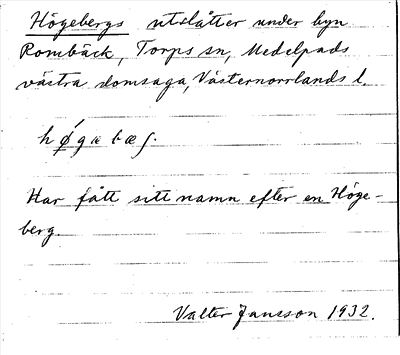 Högebergs utslåtter under byn
Rombäck, Torps sn, Medelpads
västra domsaga, Västernorrlands l.
hǿgæbæʃ.
Har fått sitt namn efter en Höge-
berg.
Valter Jansson 1932.